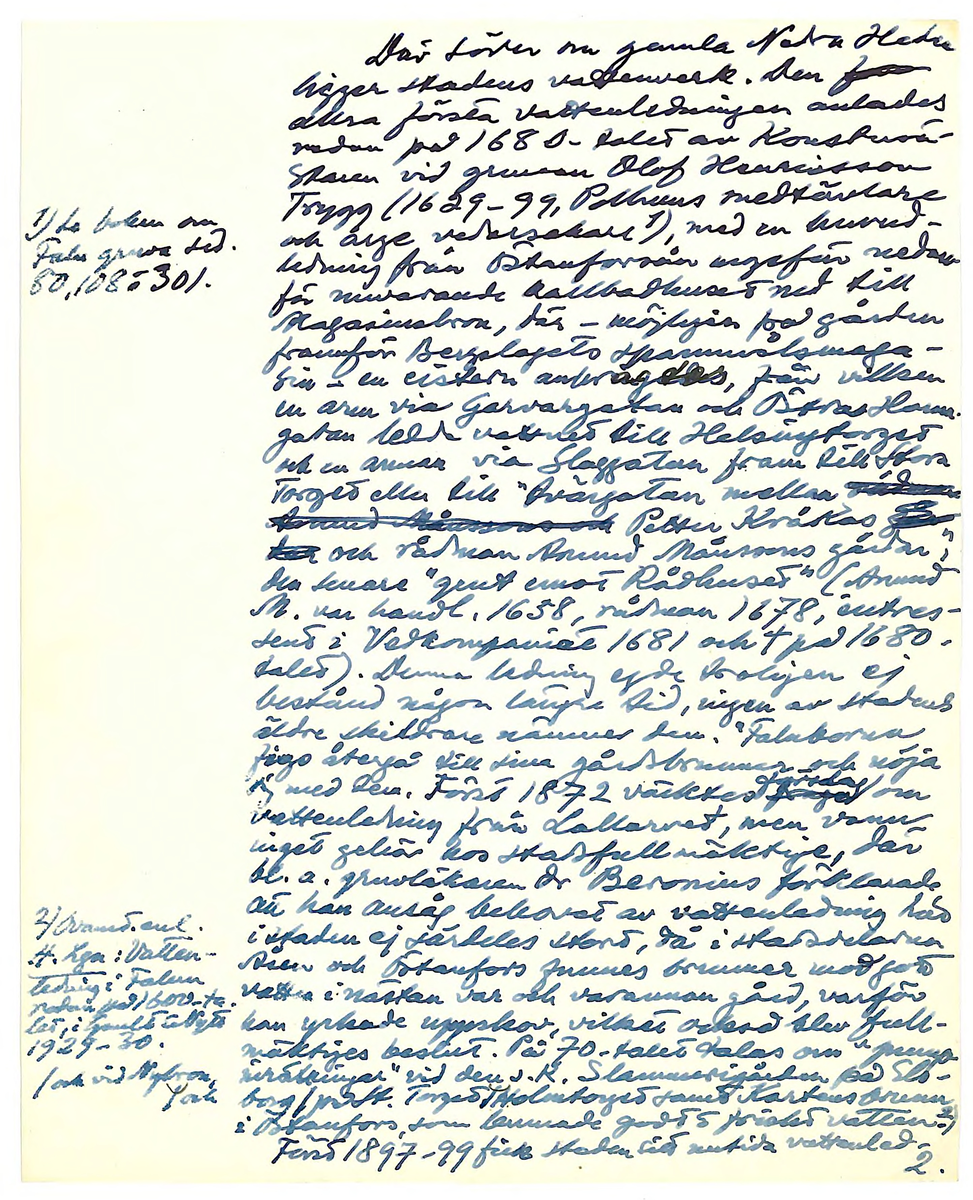 Där söder om gamla Nedra Heden
ligger stadens vattenverk. Den
allra första vattenledningen anlades
redan på 1680-talet av Konstmä-
staren vid gruvan Olof Henricsson
Trygg (1629-99, Polhems medtävlare
och arge vedersakare 1), med en huvud-
ledning från Östanforsån ungefär nedan-
för nuvarande kallbadhuset ned till
Magasinsbron, där - möjligen på gården
framför Bergslagets spannmålsmaga-
sin - en cistern anbragtes, från vilken
en arm via Garvargatan och Östra Hamn-
gatan ledde vattnet till Helsingtorget
och en annan via Slaggatan fram till Stora
Torget eller till "Tvärgatan mellan
Petter Kråkas
och rådman Anund Månssons gårdar",
den senare "gent emot Rådhuset" (Anund
M. var handl. 1658, rådman 1678, intres-
sent i Vedkompaniet 1681 och † på 1680-
talet). Denna ledning egde troligen ej
bestånd någon längre tid, ingen av stadens
äldre skildrare nämner den. Faluborna
fingo återgå till sina gårdsbrunnar och nöja
sig med dem. Först 1872 väcktes förslag om
vattenledning från Lallarvet, men vann
inget gehör hos stadsfullmäktige, där
bl. a. gruvläkaren dr Beronius förklarade
att han ansåg behovet av vattenledning här
i staden ej särdeles stort, då i stadsdelarna
Åsen och Östanfors funnes brunnar med gott
vatten i nästan var och varannan gård, varför
han yrkade uppskov, vilket också blev full-
mäktiges beslut. På 70-talet talas om "pump-
inrättningar" vid den s.k. Slammerigården på Els-
borg, Torget, Holmtorget samt Karstens brunn
i Östanfors, som lemnade godt o friskt vatten. 2)
Först 1897-99 fick staden sitt nutida vattenled-
2.
1) Se boken om
Falu gruva sid.
80, 108 o 301.
2) Ovanst. enl.
H. Lga: Vatten-
ledning i Falun
redan på 1600-ta-
let, i Gammalt o Nytt
1929-30.
(och vid Nybron,
och